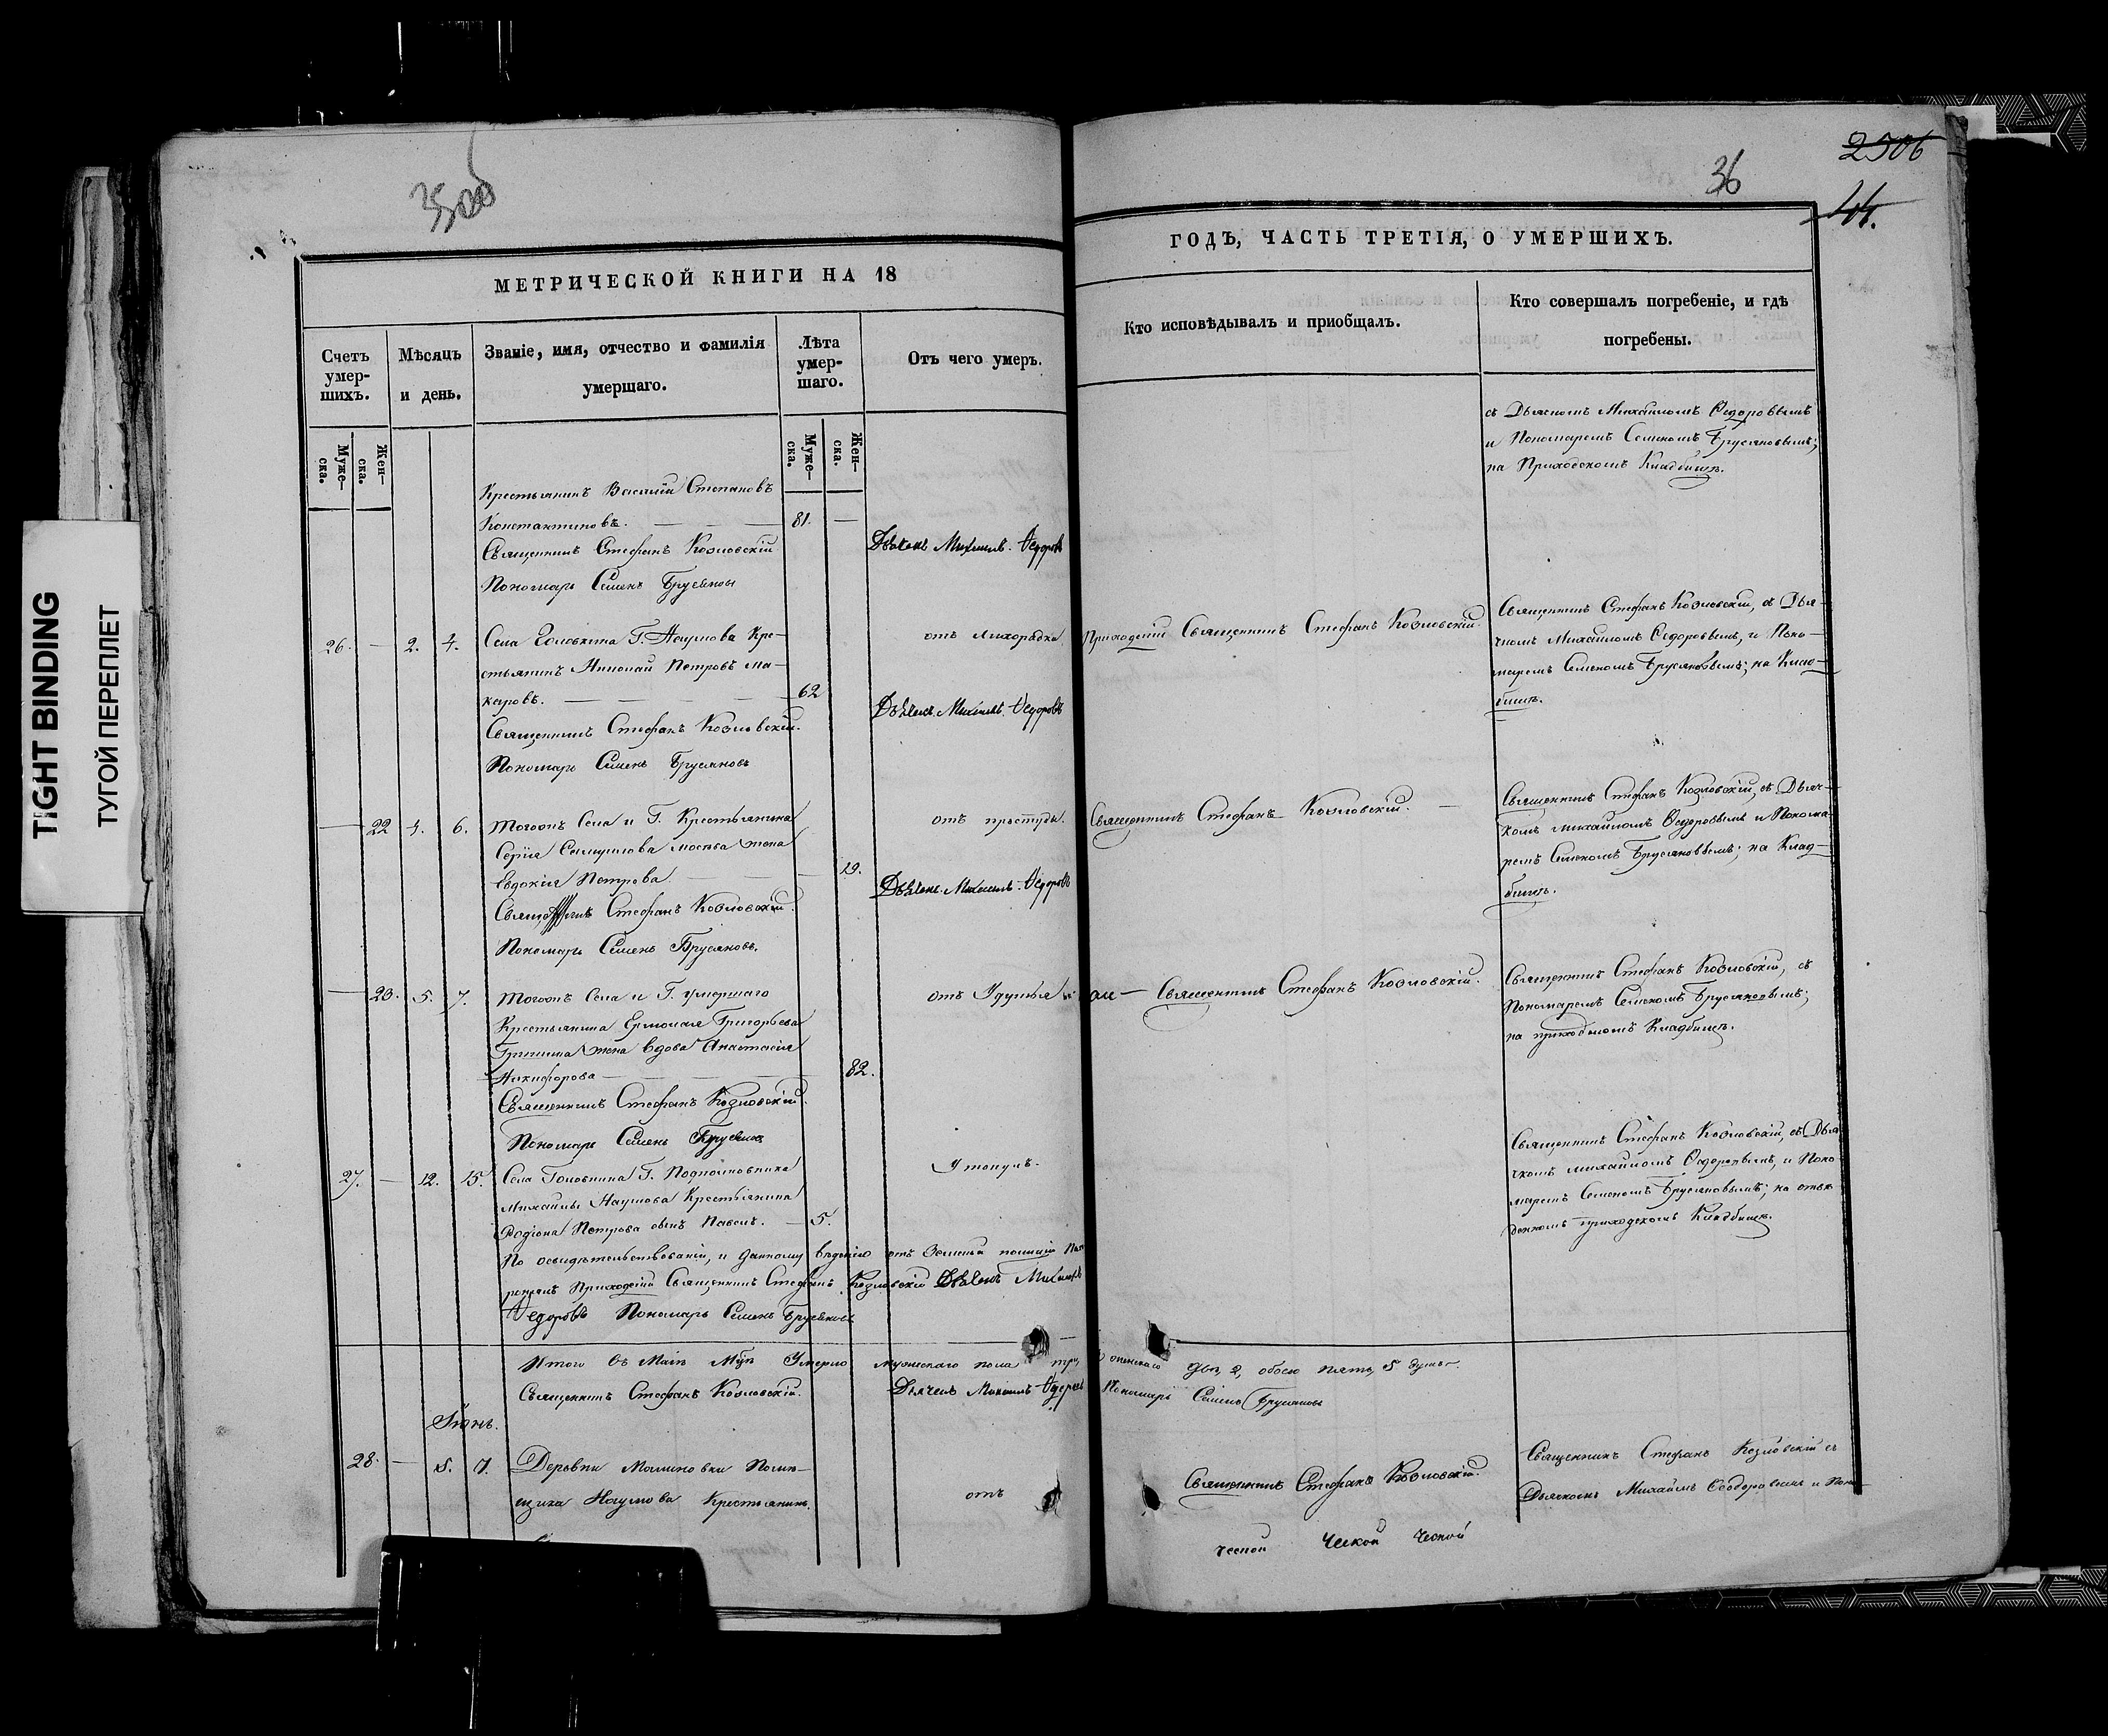 2506
36
44.
TIGHT BINDING
ТУГОЙ ПЕРЕПЛЕТ
МЕТРИЧЕСКОЙ КНИГИ НА 18
Счетъ умер-шихъ.
Мѣсяцъ и день.
Званіе, имя, отчество и фамилія
умершаго.
Лѣта умер-шаго.
Отъ чего умеръ.
Муже-ска.
Жен-ска.
Муже-ска.
Жен-ска.
Крестьянинъ Василій Степановъ
Константиновъ. 81.
Священникъ Стефанъ Козловскій
Дьячекъ Михаилъ Федоровъ
Пономарь Семенъ Брусяновъ
26. — 2. 4. Села Головкина Г. Наумова Кре-
стьянинъ Николай Петровъ Ма-
каровъ. 62
отъ лихорадки
Священникъ Стефанъ Козловскій.
Дьячекъ Михаилъ Федоровъ
Пономарь Семенъ Брусяновъ
— 22 4. 6. Тогожъ Села и Г. Крестьянина
Сергія Самуилова жена
Евдокія Петрова 29.
отъ простуды.
Священникъ Стефанъ Козловскій.
Дьячекъ Михаилъ Федоровъ
Пономарь Семенъ Брусяновъ.
— 23. 5. 7. Тогожъ Села и Г. умершаго
Крестьянина Ермолая Григорьева
жена вдова Анастасія
Никифорова 82.
отъ Удушья
Священникъ Стефанъ Козловскій.
Пономарь Семенъ Брусяновъ
27. — 12. 15. Села Головкина Г. Подполковника
Михайлы Наумова Крестьянина
Родіона Петрова сынъ Павелъ. — 5.
Утонулъ.
По освидѣтельствованіи, и данному вѣденію отъ Земской полиціи
Приходскій Священникъ Стефанъ Козловскій Дьячекъ Михаилъ
Федоровъ Пономарь Семенъ Брусяновъ
Итого Въ Маіѣ Умерло мужескаго пола три, женскаго двѣ, 2, обоего пять, 5 душъ.
Священникъ Стефанъ Козловскій. Дьячекъ Михаилъ Федоровъ Пономарь Семенъ Брусяновъ
Іюнь.
28. — 5. 7. Деревни Малиновки Помѣ-
щика Наумова Крестьянинъ
отъ
ГОДЪ, ЧАСТЬ ТРЕТІЯ, О УМЕРШИХЪ.
Кто исповѣдывалъ и приобщалъ.
Кто совершалъ погребеніе, и гдѣ
погребены.
съ Дьячкомъ Михаиломъ Ѳедоровымъ
и Пономаремъ Семеномъ Брусяновымъ;
на Приходскомъ Кладбищѣ.
Приходскій Священникъ Стефанъ Козловскій.
Священникъ Стефанъ Козловскій, съ Дья-
чкомъ Михаиломъ Ѳедоровымъ, и Поно-
маремъ Семеномъ Брусяновымъ; на Клад-
бищѣ.
Священникъ Стефанъ Козловскій.
Священникъ Стефанъ Козловскій, съ Дьяч-
комъ Михаиломъ Ѳедоровымъ и Понома-
ремъ Семеномъ Брусяновымъ; на Клад-
бищѣ.
Священникъ Стефанъ Козловскій.
Священникъ Стефанъ Козловскій, съ
Пономаремъ Семеномъ Брусяновымъ;
на приходскомъ Кладбищѣ.
Священникъ Стефанъ Козловскій, съ Дья-
чкомъ Михаиломъ Ѳедоровымъ, и Поно-
маремъ Семеномъ Брусяновымъ; на
приходскомъ Кладбищѣ.
Священникъ Стефанъ Козловскій.
Священникъ Стефанъ Козловскій съ
Дьячкомъ Михайломъ Ѳеодоровымъ и Поно-